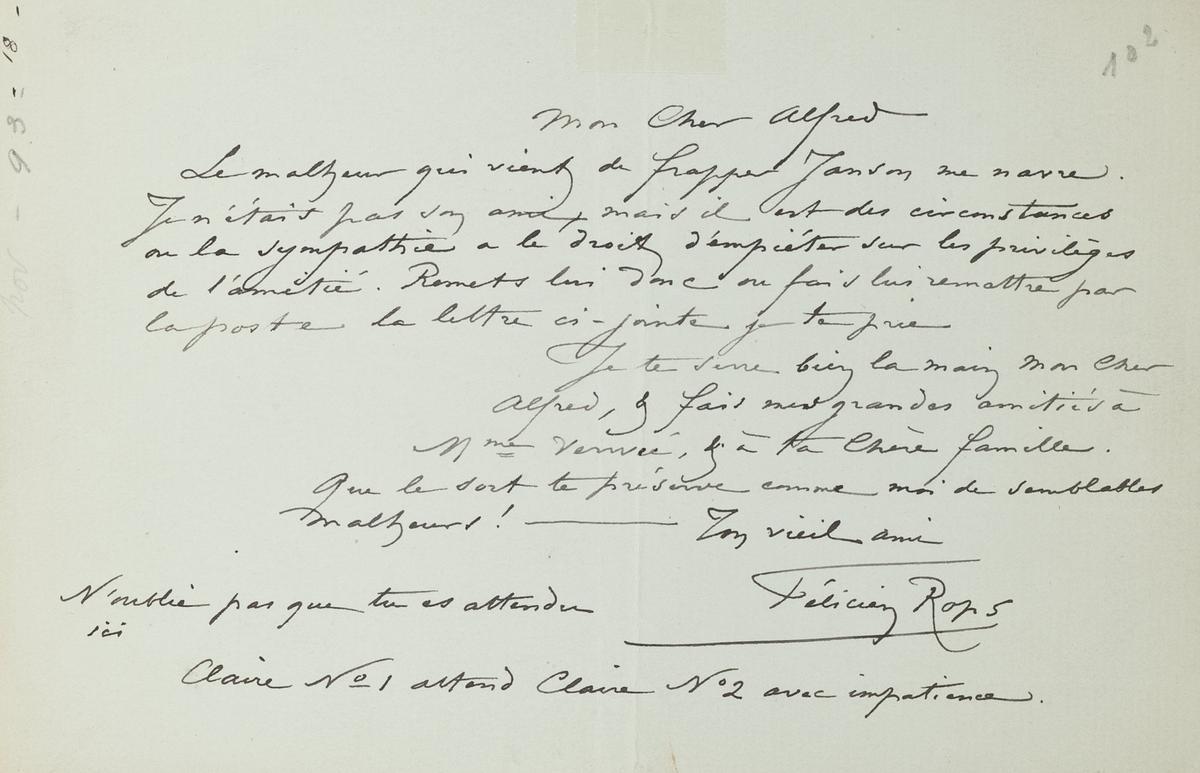 102
Mon Cher Alfred
Le malheur qui vient de frapper Janson me navre.
Je n'étais pas son ami, mais il est des circonstances
ou la sympathie a le droit d'empiéter sur les privilèges
de l'amitié. Remets lui donc ou fais lui remettre par
la poste la lettre ci-jointe je te prie
Je te serre bien la main mon cher
Alfred, & fais mes grandes amitiés à
Mme Verwée, & à ta chère famille.
Que le sort te préserve comme moi de semblables
malheurs! — Ton vieil ami
Félicien Rops
N'oublie pas que tu es attendu
ici
Claire No 1 attend Claire No 2 avec impatience.